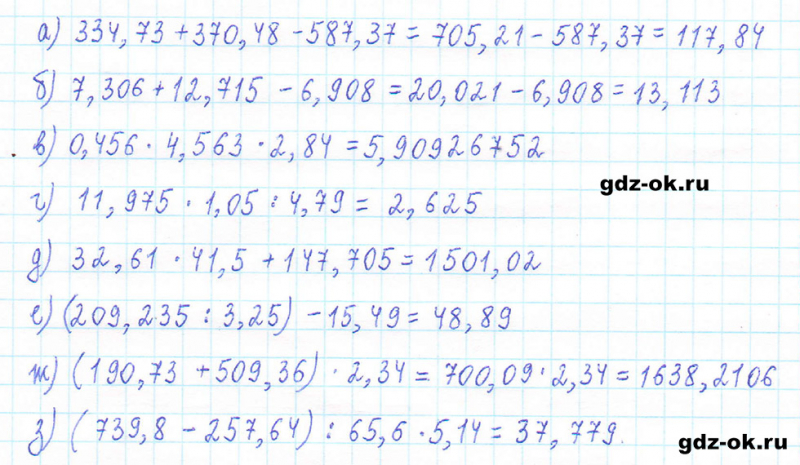 а) 334,73 + 370,48 - 587,37 = 705,21 - 587,37 = 117,84
б) 7,306 + 12,715 - 6,908 = 20,021 - 6,908 = 13,113
в) 0,456 · 4,563 · 2,84 = 5,90926752
gdz-ok.ru
г) 11,975 · 1,05 : 4,79 = 2,625
д) 32,61 · 41,5 + 147,705 = 1501,02
е) (209,235 : 3,25) - 15,49 = 48,89
ж) (190,73 + 509,36) · 2,34 = 700,09 · 2,34 = 1638,2106
з) (739,8 - 257,64) : 65,6 · 5,14 = 37,779.
gdz-ok.ru